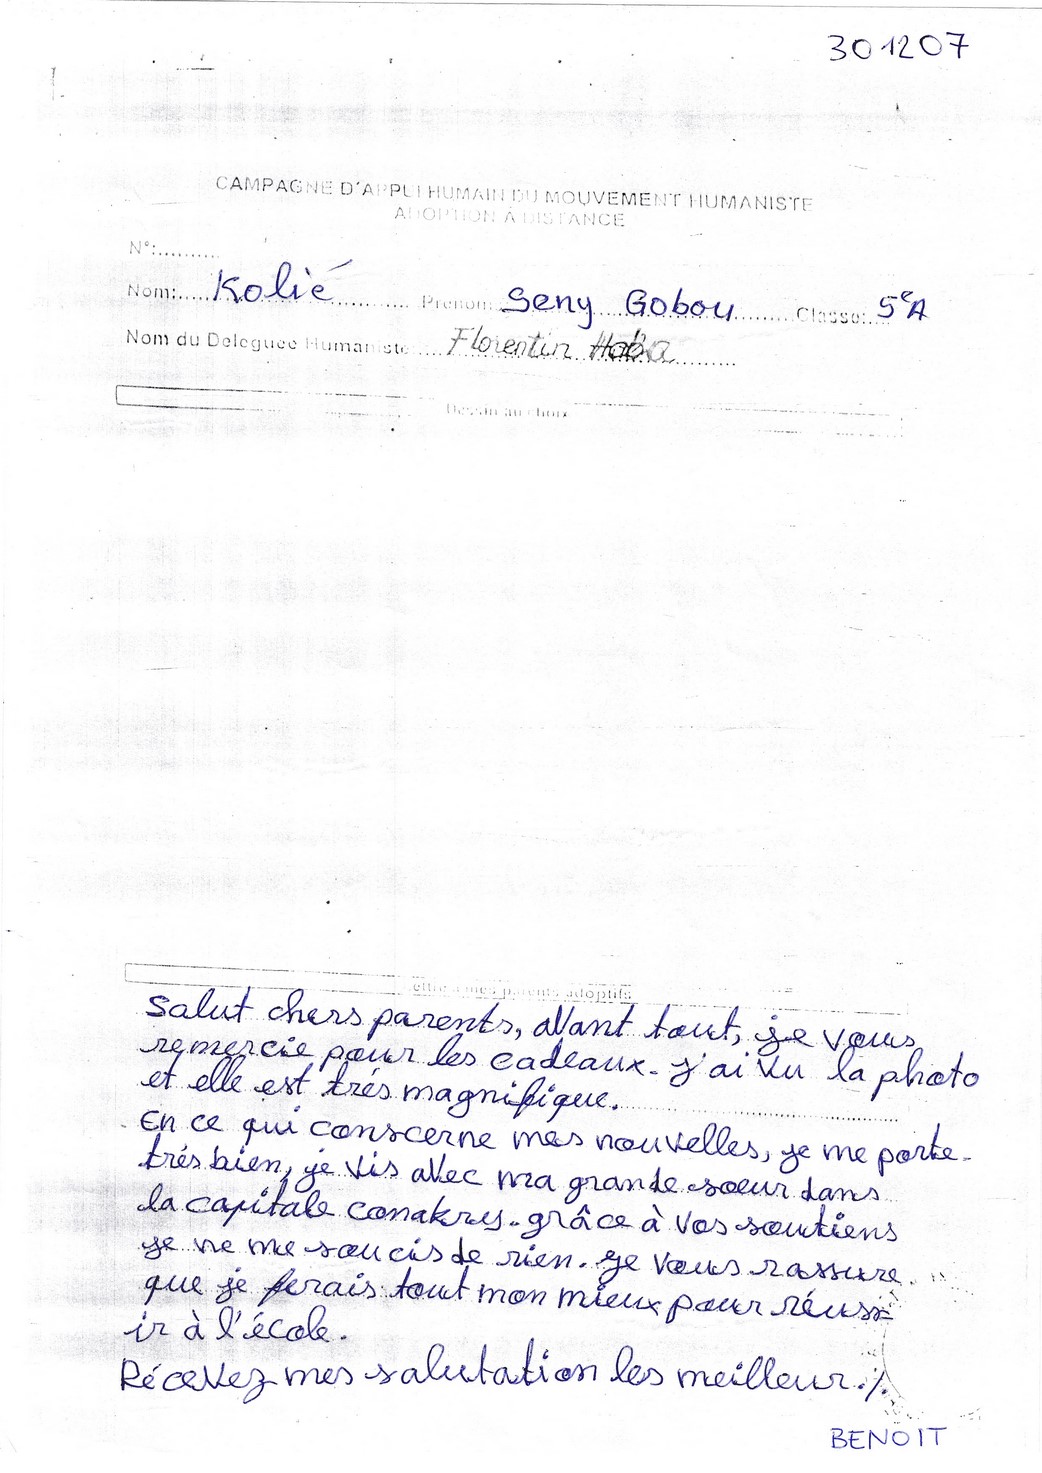 301207
CAMPAGNE D'APPUI HUMAIN DU MOUVEMENT HUMANISTE
ADOPTION A DISTANCE
N°:..........
Nom:.....Kolié............ Prenom: Seny Gobou........Classe:...5e A
Nom du Deleguée Humaniste:...Florentin Haba..........
Dessin au choix
ettre a mes parents adoptifs
Salut chers parents, avant tout, je vous
remercie pour les cadeaux. j'ai vu la photo
et elle est trés magnifique.
En ce qui conscerne mes nouvelles, je me porte
trés bien, je vis avec ma grande soeur dans
la capitale conakry. grâce à vos soutiens
je ne me soucis de rien. je vous rassure
que je ferais tout mon mieux pour réuss=
ir à l'école.
Récevez mes salutation les meilleur./.
BENOIT